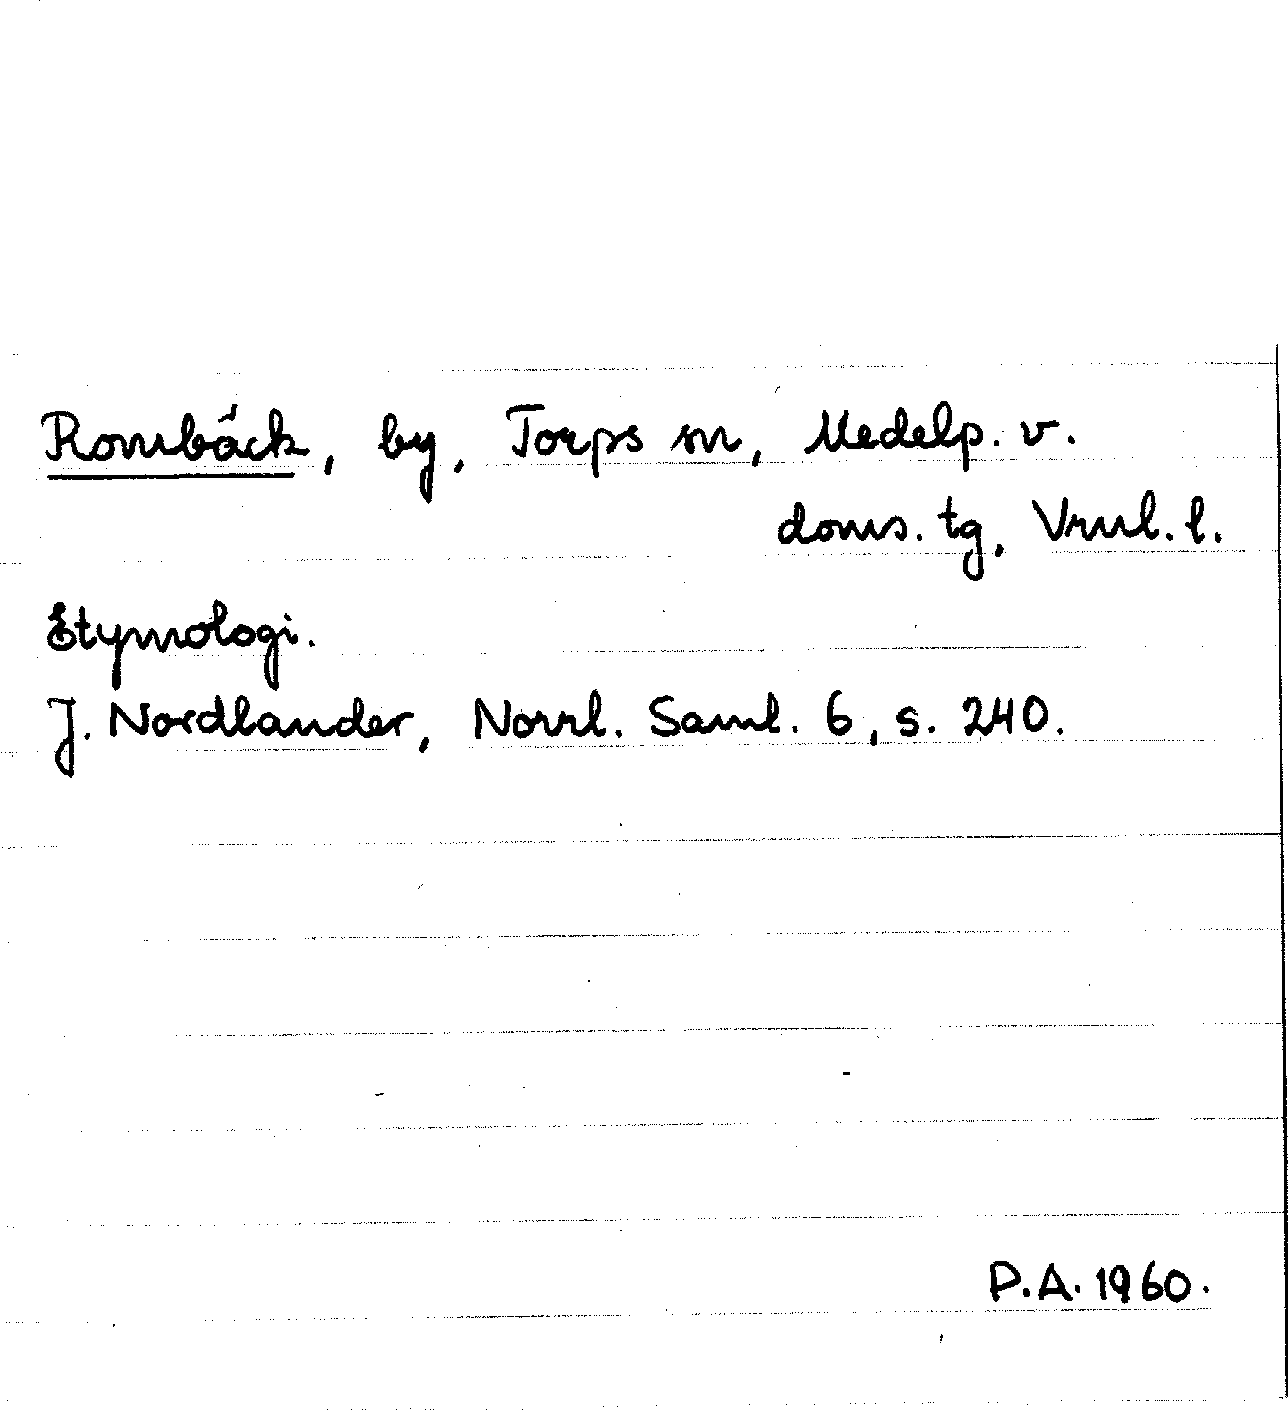 Rombäck, by, Torps sn, Medelp. v.
doms. tg, Vrnl. l.
Etymologi.
J. Nordlander, Norrl. Saml. 6, s. 240.
P.A. 1960.